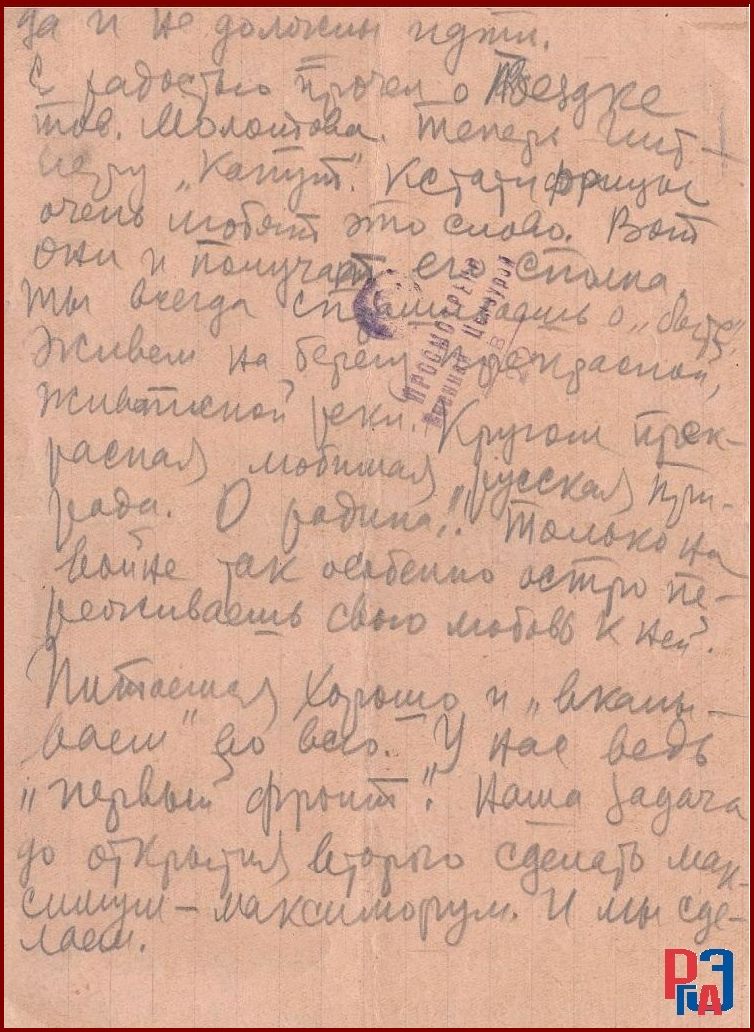 да и не должны идти.
С радостью прочел о поездке
тов. Молотова. Теперь Гит-
леру „Капут“. Кстати фрицы
очень любят это слово. Вот
они и получат его сполна.
Ты всегда спрашиваешь о „быте“.
Живем на берегу прекрасной,
живописной реки. Кругом прек-
расная любимая русская при-
рода. О родина!! Только на
войне так особенно остро пе-
реживаешь свою любовь к ней.
Питаемся хорошо и „вкалы-
ваем“ во всю. У нас ведь
„первый фронт“. Наша задача
до открытия второго сделать мак-
симум – максиморум. И мы сде-
лаем.
ПРОСМОТРЕНО
Военной Цензурой
РГАЭ